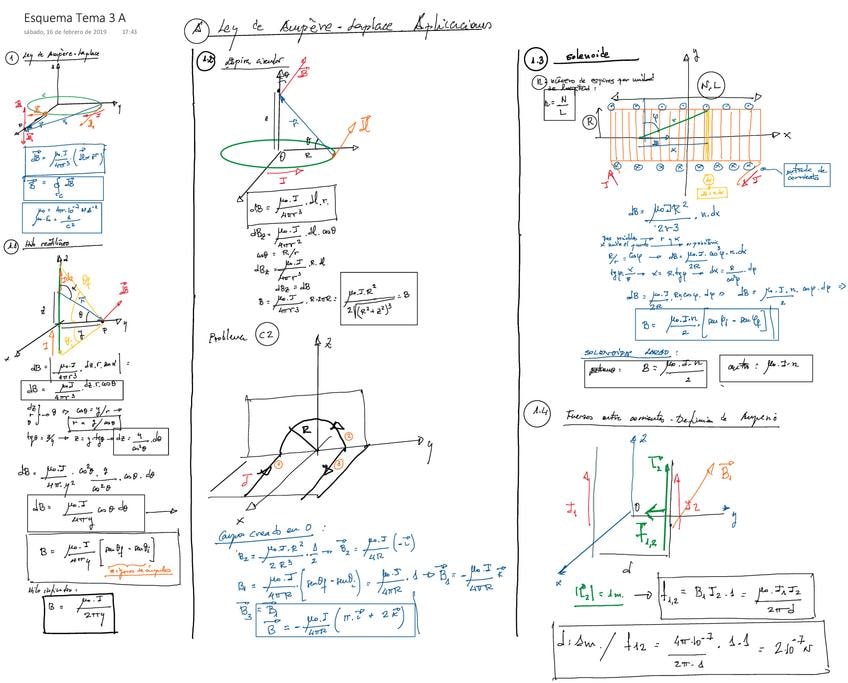 Esquema Tema 3 A
sábado, 16 de febrero de 2019 17:43
A Ley de Ampère-Laplace Aplicacions
1 Ley de Ampère-Laplace
z
y
dB = μ₀.I/4πr³ (dl x r)
B = ∮ dB
1.1 Hilo rectilíneo
z
y
x
I
P
dB = μ₀.I/4πr³ . dz.r.cosθ
cosθ = y/r →
r = y/cosθ
tgθ = z/y → z = y.tgθ → dz = y/cos²θ . dθ
dB = μ₀.I/4π.y² . cos²θ . y/cos²θ . cosθ . dθ
dB = μ₀.I/4πy cosθ dθ
B = μ₀.I/4πy [senθf - senθi]
signos de ángulos
B = μ₀.I/2πy
1.2 Espira circular
B
dl
R
I
dB = μ₀.I/4πr³ . dl.r.
dBz = μ₀.I/4πr² . dl.cosθ
cosθ = R/r
dBz = μ₀.I/4πr³ . R.dl
B = μ₀.I/4πr³ . R.2πR =
μ₀.I.R²/2√(R²+z²)³ = B
Problema C2
z
R
y
I
x
1
2
3
Campo creado en O :
B₂ = μ₀.I.R²/2R³ . 1/2 → B₂ = μ₀.I/4R (-i)
B₁ = μ₀.I/4πR [senθf - senθi] = μ₀.I/4πR . 1 → B₁ = -μ₀.I/4πR k
B₃ = B₁
B = -μ₀.I/4πR (π.i + 2k)
1.3 solenoide
n: número de espiras por unidad
de longitud :
n = N/L
N, L
y
R
x
I
I
entrada de
corriente
dB = μ₀IR²/2r³ . n.dx
R/r = cosφ → dB = μ₀.I/2R cos³φ.n.dx
tgφ = x/R → x = R.tgφ → dx = R/cos²φ . dφ
dB = μ₀.I/2R . R n cosφ.dφ ⇒ dB = μ₀.I.n/2 . cosφ.dφ ⇒
B = μ₀.I.n/2 . [senφf - senφi]
SOLENOIDE LARGO :
extremo : B = μ₀.I.n/2
centro : μ₀.I.n
1.4 Fuerzas entre corrientes - Definición de Amperio
z
L₂
B₁
I₁
O
I₂
y
F₁,₂
x
d
|L₂| = 1m. → f₁,₂ = B₁ I₂ . 1 = μ₀.I₁I₂/2πd
d: 1m. / f₁₂ = 4π.10⁻⁷/2π.1 . 1.1 = 2.10⁻⁷ N